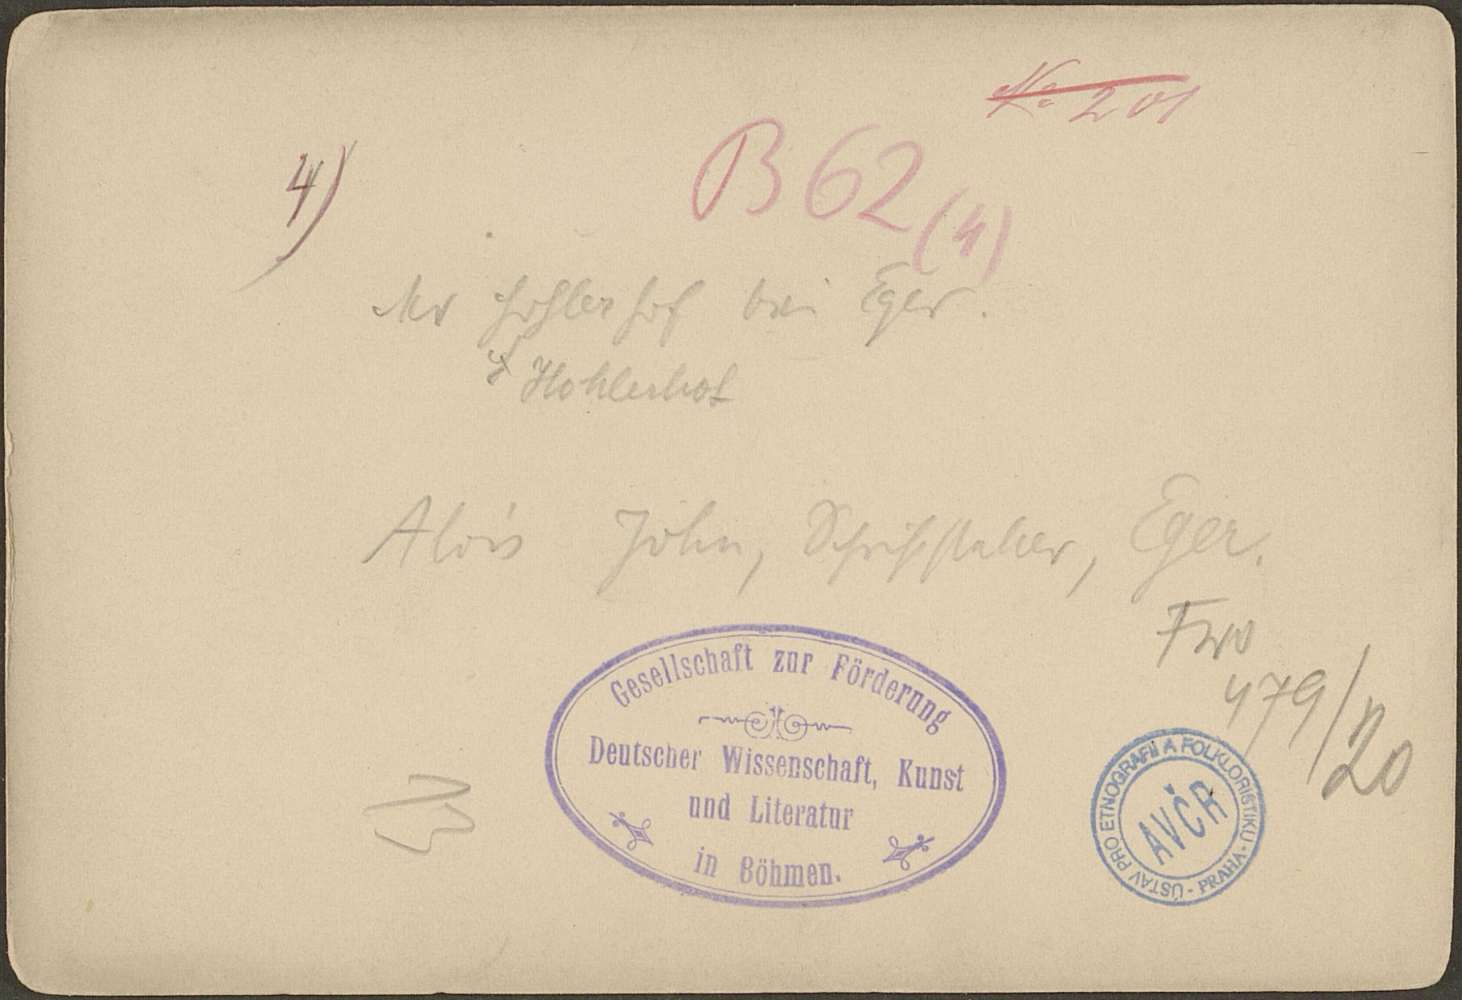 No 201
4)
B 62 (4)
Der Hohlerhof bei Eger.
Hohlerhof
Alois John, Schriftsteller, Eger.
479/20
Gesellschaft zur Förderung
Deutscher Wissenschaft, Kunst
und Literatur
in Böhmen.
ÚSTAV PRO ETNOGRAFII A FOLKLORISTIKU - PRAHA -
AVČR